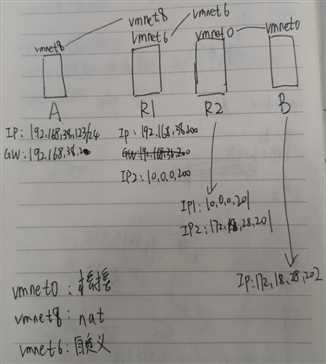 vmnet8
vmnet6
vmnet8
vmnet8
vmnet6
vmnet0
vmnet0
A
R1
R2
B
IP: 192.168.38.123/24
GW: 192.168.38.2
IP: 192.168.38.200
IP2: 10.0.0.200
IP1: 10.0.0.201
IP2: 172.18.28.201
IP: 172.18.28.202
vmnet0: 桥接
vmnet8: nat
vmnet6: 自定义